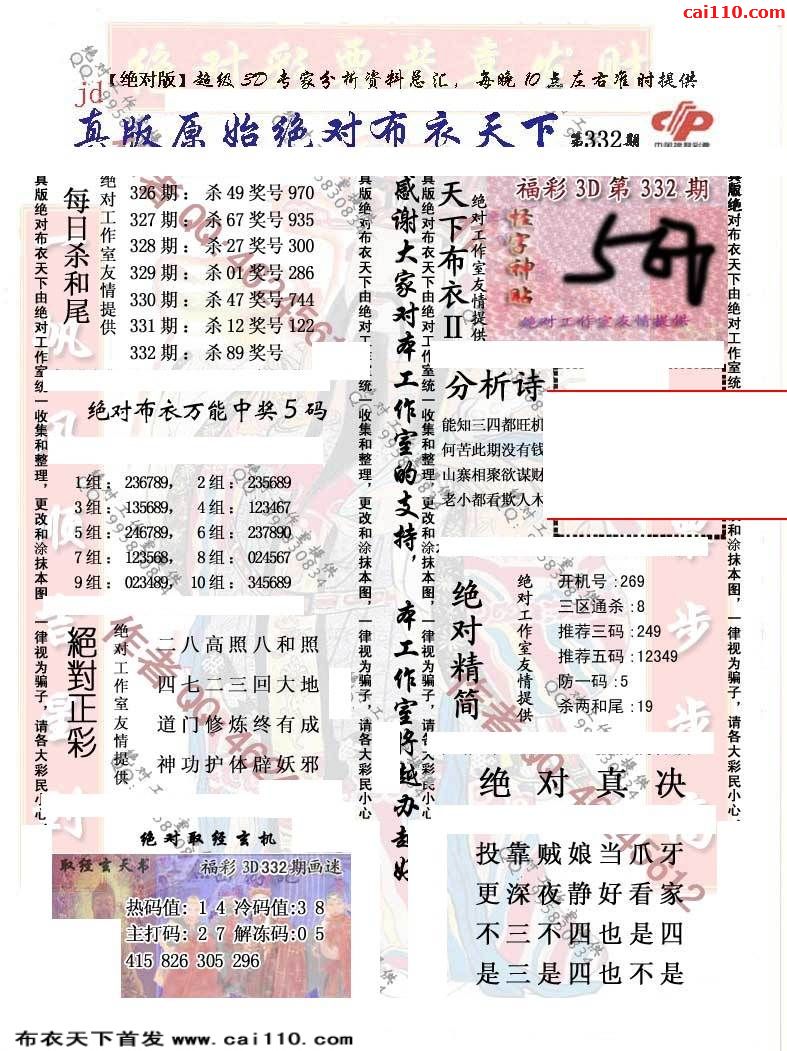 cai110.com
【绝对版】超级3D专家分析资料总汇，每晚10点左右准时提供
jd
真版原始绝对布衣天下 第332期
每日杀和尾
绝对工作室友情提供
326期：杀49奖号970
327期：杀67奖号935
328期：杀27奖号300
329期：杀01奖号286
330期：杀47奖号744
331期：杀12奖号122
332期：杀89奖号
绝对布衣万能中奖5码
1组：236789，2组：235689
3组：135689，4组：123467
5组：246789，6组：237890
7组：123568，8组：024567
9组：023489，10组：345689
絕對正彩
绝对工作室友情提供
二八高照八和照
四七二三回大地
道门修炼终有成
神功护体辟妖邪
绝对取经玄机
取经玄天书
福彩3D332期画迷
热码值：1 4冷码值:3 8
主打码：2 7解冻码:0 5
415 826 305 296
真版绝对布衣天下由绝对工作室统一收集和整理，更改和涂抹本图，一律视为骗子，请各大彩民小心
感谢大家对本工作室的支持，本工作室将越办越好
真版绝对布衣天下由绝对工作室统一收集和整理，更改和涂抹本图，一律视为骗子，请各大彩民小心
天下布衣II
绝对工作室友情提供
福彩3D第332期
怪字神贴
绝对工作室友情提供
分析诗
能知三四都旺机
何苦此期没有钱
山寨相聚欲谋财
老小都看欺人木
绝对精简
绝对工作室友情提供
开机号:269
三区通杀:8
推荐三码:249
推荐五码:12349
防一码:5
杀两和尾:19
绝对真决
投靠贼娘当爪牙
更深夜静好看家
不三不四也是四
是三是四也不是
真版绝对布衣天下由绝对工作室统一收集和整理，更改和涂抹本图，一律视为骗子，请各大彩民小心
布衣天下首发 www.cai110.com